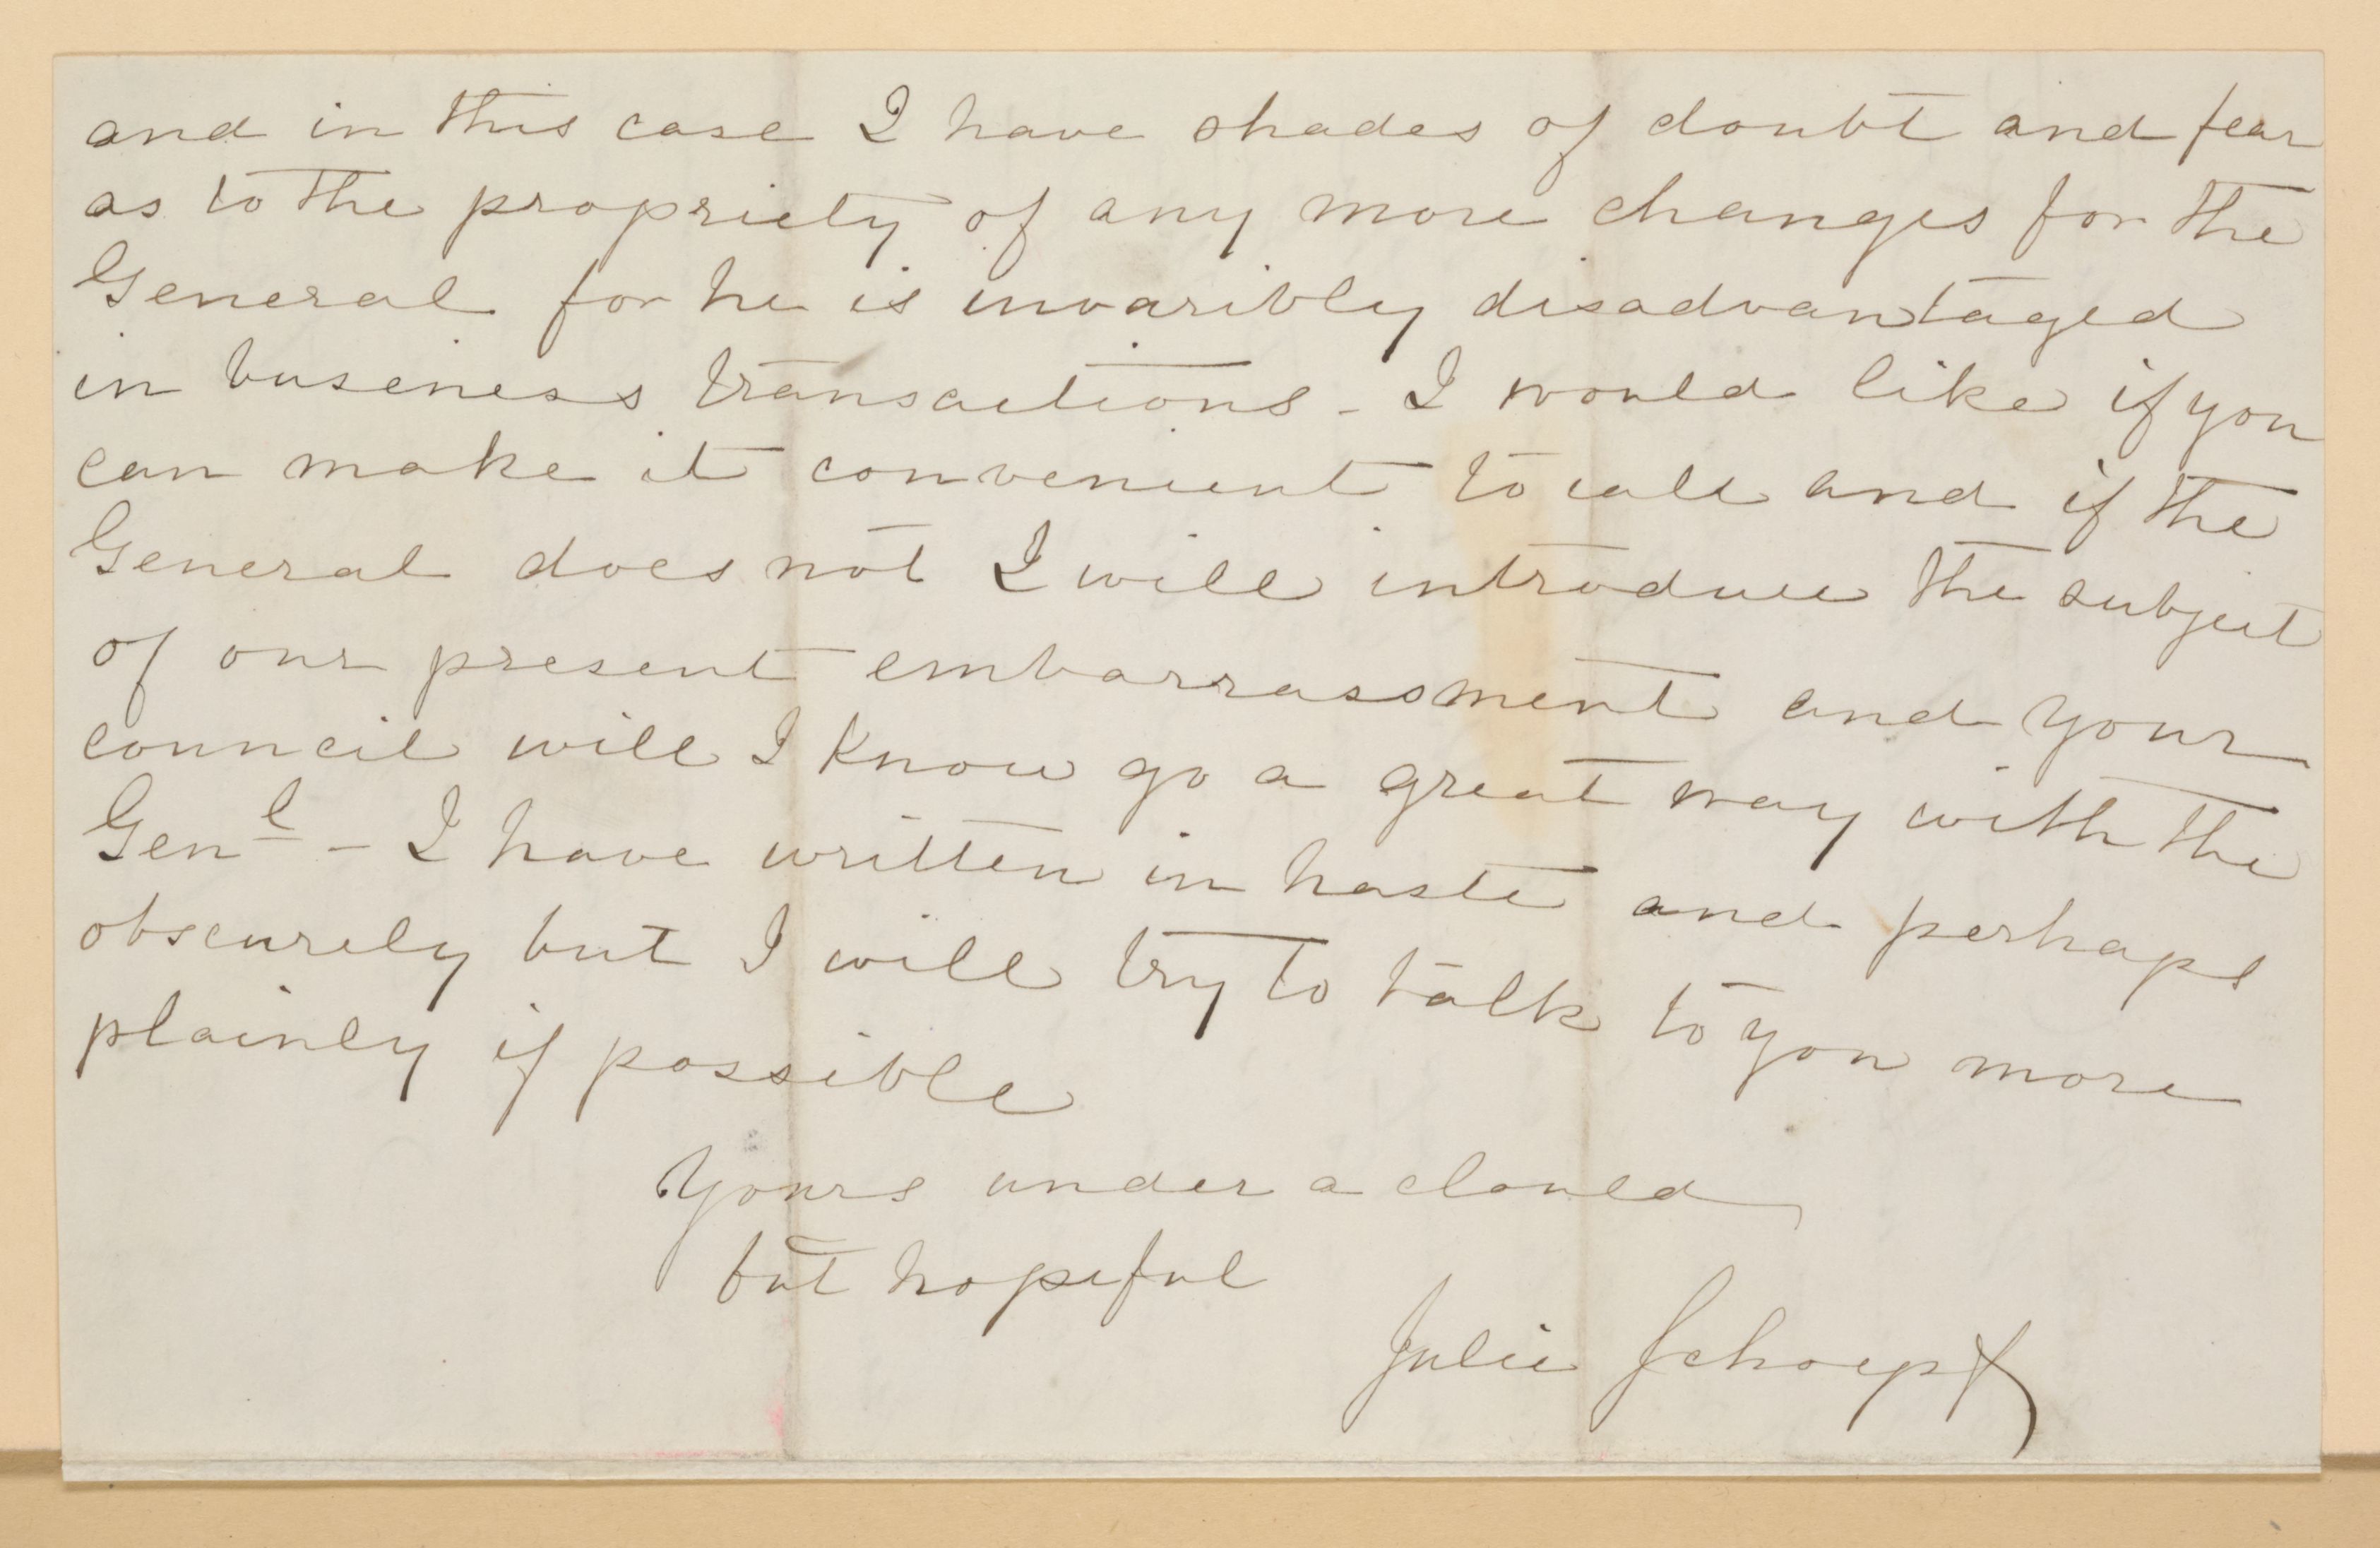 and in this case I have shades of doubt and fear
as to the propriety of any more changes for the
General for he is invaribly disadvantaged
in buseness transactions - I would like if you
can make it convenient to call and if the
General does not I will introduce the subject
of our present embarrassment and your
council will I know go a great way with the
Genl - I have written in haste and perhaps
obscurely but I will try to talk to you more
plainly if possible
Yours under a clould
but hopeful
Julie Schoepf